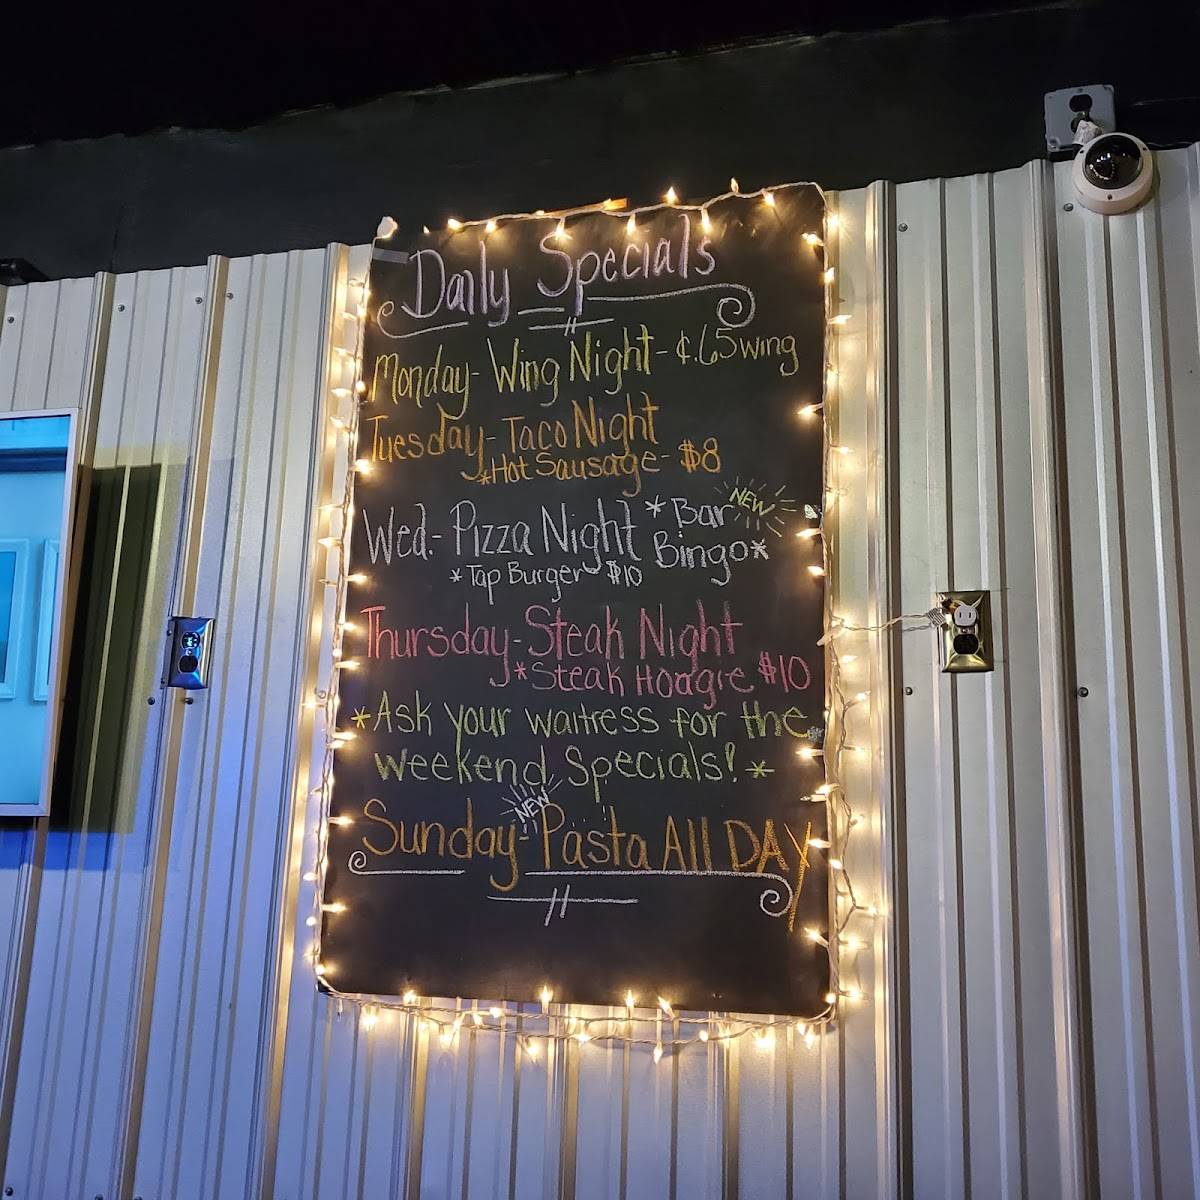 Daily Specials
Monday - Wing Night - ¢.65 wing
Tuesday - Taco Night
*Hot Sausage - $8
Wed. - Pizza Night *Bar NEW
Bingo*
*Tap Burger $10
Thursday - Steak Night
*Steak Hoagie $10
*Ask your waitress for the
weekend Specials! *
NEW
Sunday - Pasta All DAY